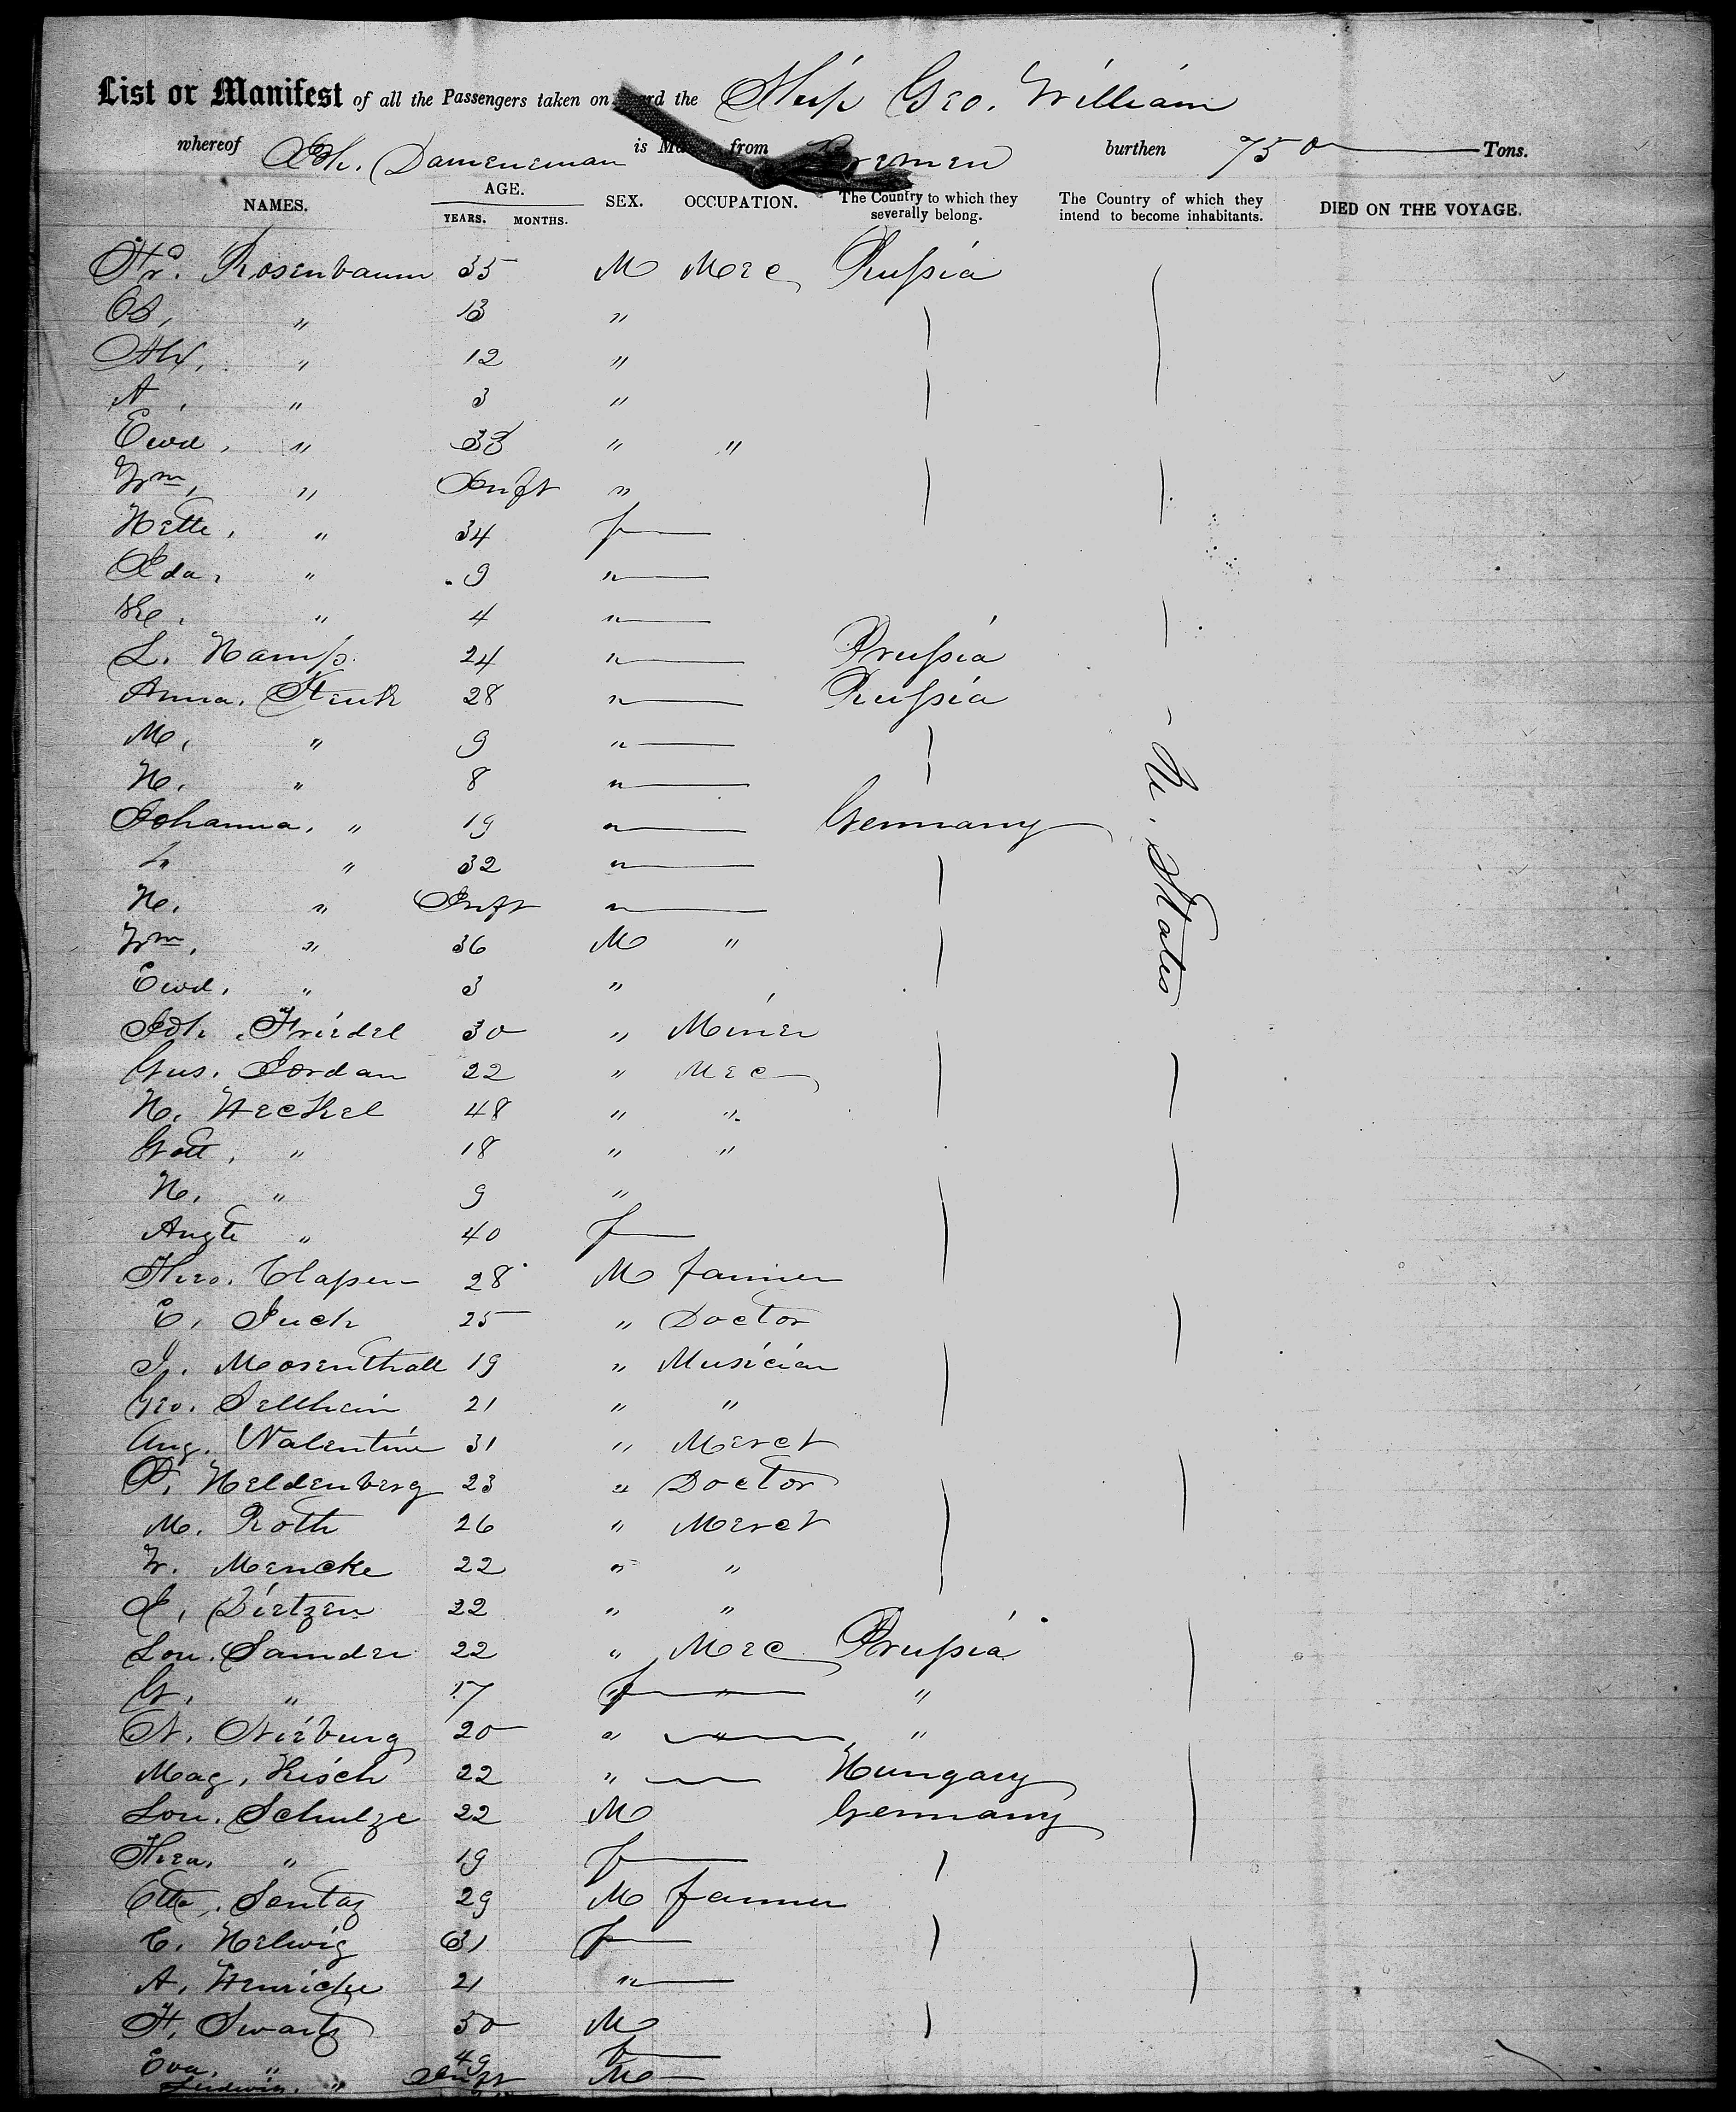 List or Manifest of all the Passengers taken on board the Ship Geo. William
whereof Dameneman is from Bremen burthen 750 Tons.
NAMES. AGE. YEARS. MONTHS. SEX. OCCUPATION. The Country to which they severally belong. The Country of which they intend to become inhabitants. DIED ON THE VOYAGE.
Fr. Rosenbaum 35 M Mec Prussia
" 13 "
" 12 "
A " 3 "
Ewd, " 33 " "
Wm, " Inft "
Nette, " 34 f
Ida, " 9 "
" 4 "
L. 24 " Prussia
Anna. 28 " Prussia
M, " 9 "
H. " 8 "
Johanna. " 19 " Germany
" 32 "
H. " Inft "
Wm, " 36 M "
Ewd, " 3 "
Joh. Friedel 30 " Miner
Gus. Jordan 22 " Mec
H. Heckel 48 " "
Gott, " 18 " "
H. " 9 "
Augte " 40 f
Theo. Classen 28 M farmer
E, Juch 25 " Doctor
J. Mosenthall 19 " Musician
Geo. Sellhein 21 " "
Aug. Valentine 31 " Merct
P. Heldenberg 23 " Doctor
M. Roth 26 " Merct
W. Mencke 22 " "
J, Dietzen 22 " "
Lou. Sander 22 " Mec Prussia
G, " 17 f " "
N. Nieburg 20 " " "
Mag, Kisch 22 " Hungary
Lou. Schulze 22 M Germany
Thea. " 19 f
Otto, Sentag 29 M farmer
C. Helwig 31 f
A, Henricke 21 "
H, Swartz 50 M
Eva. " 49 f
Ludwig. " Inft M
U. States